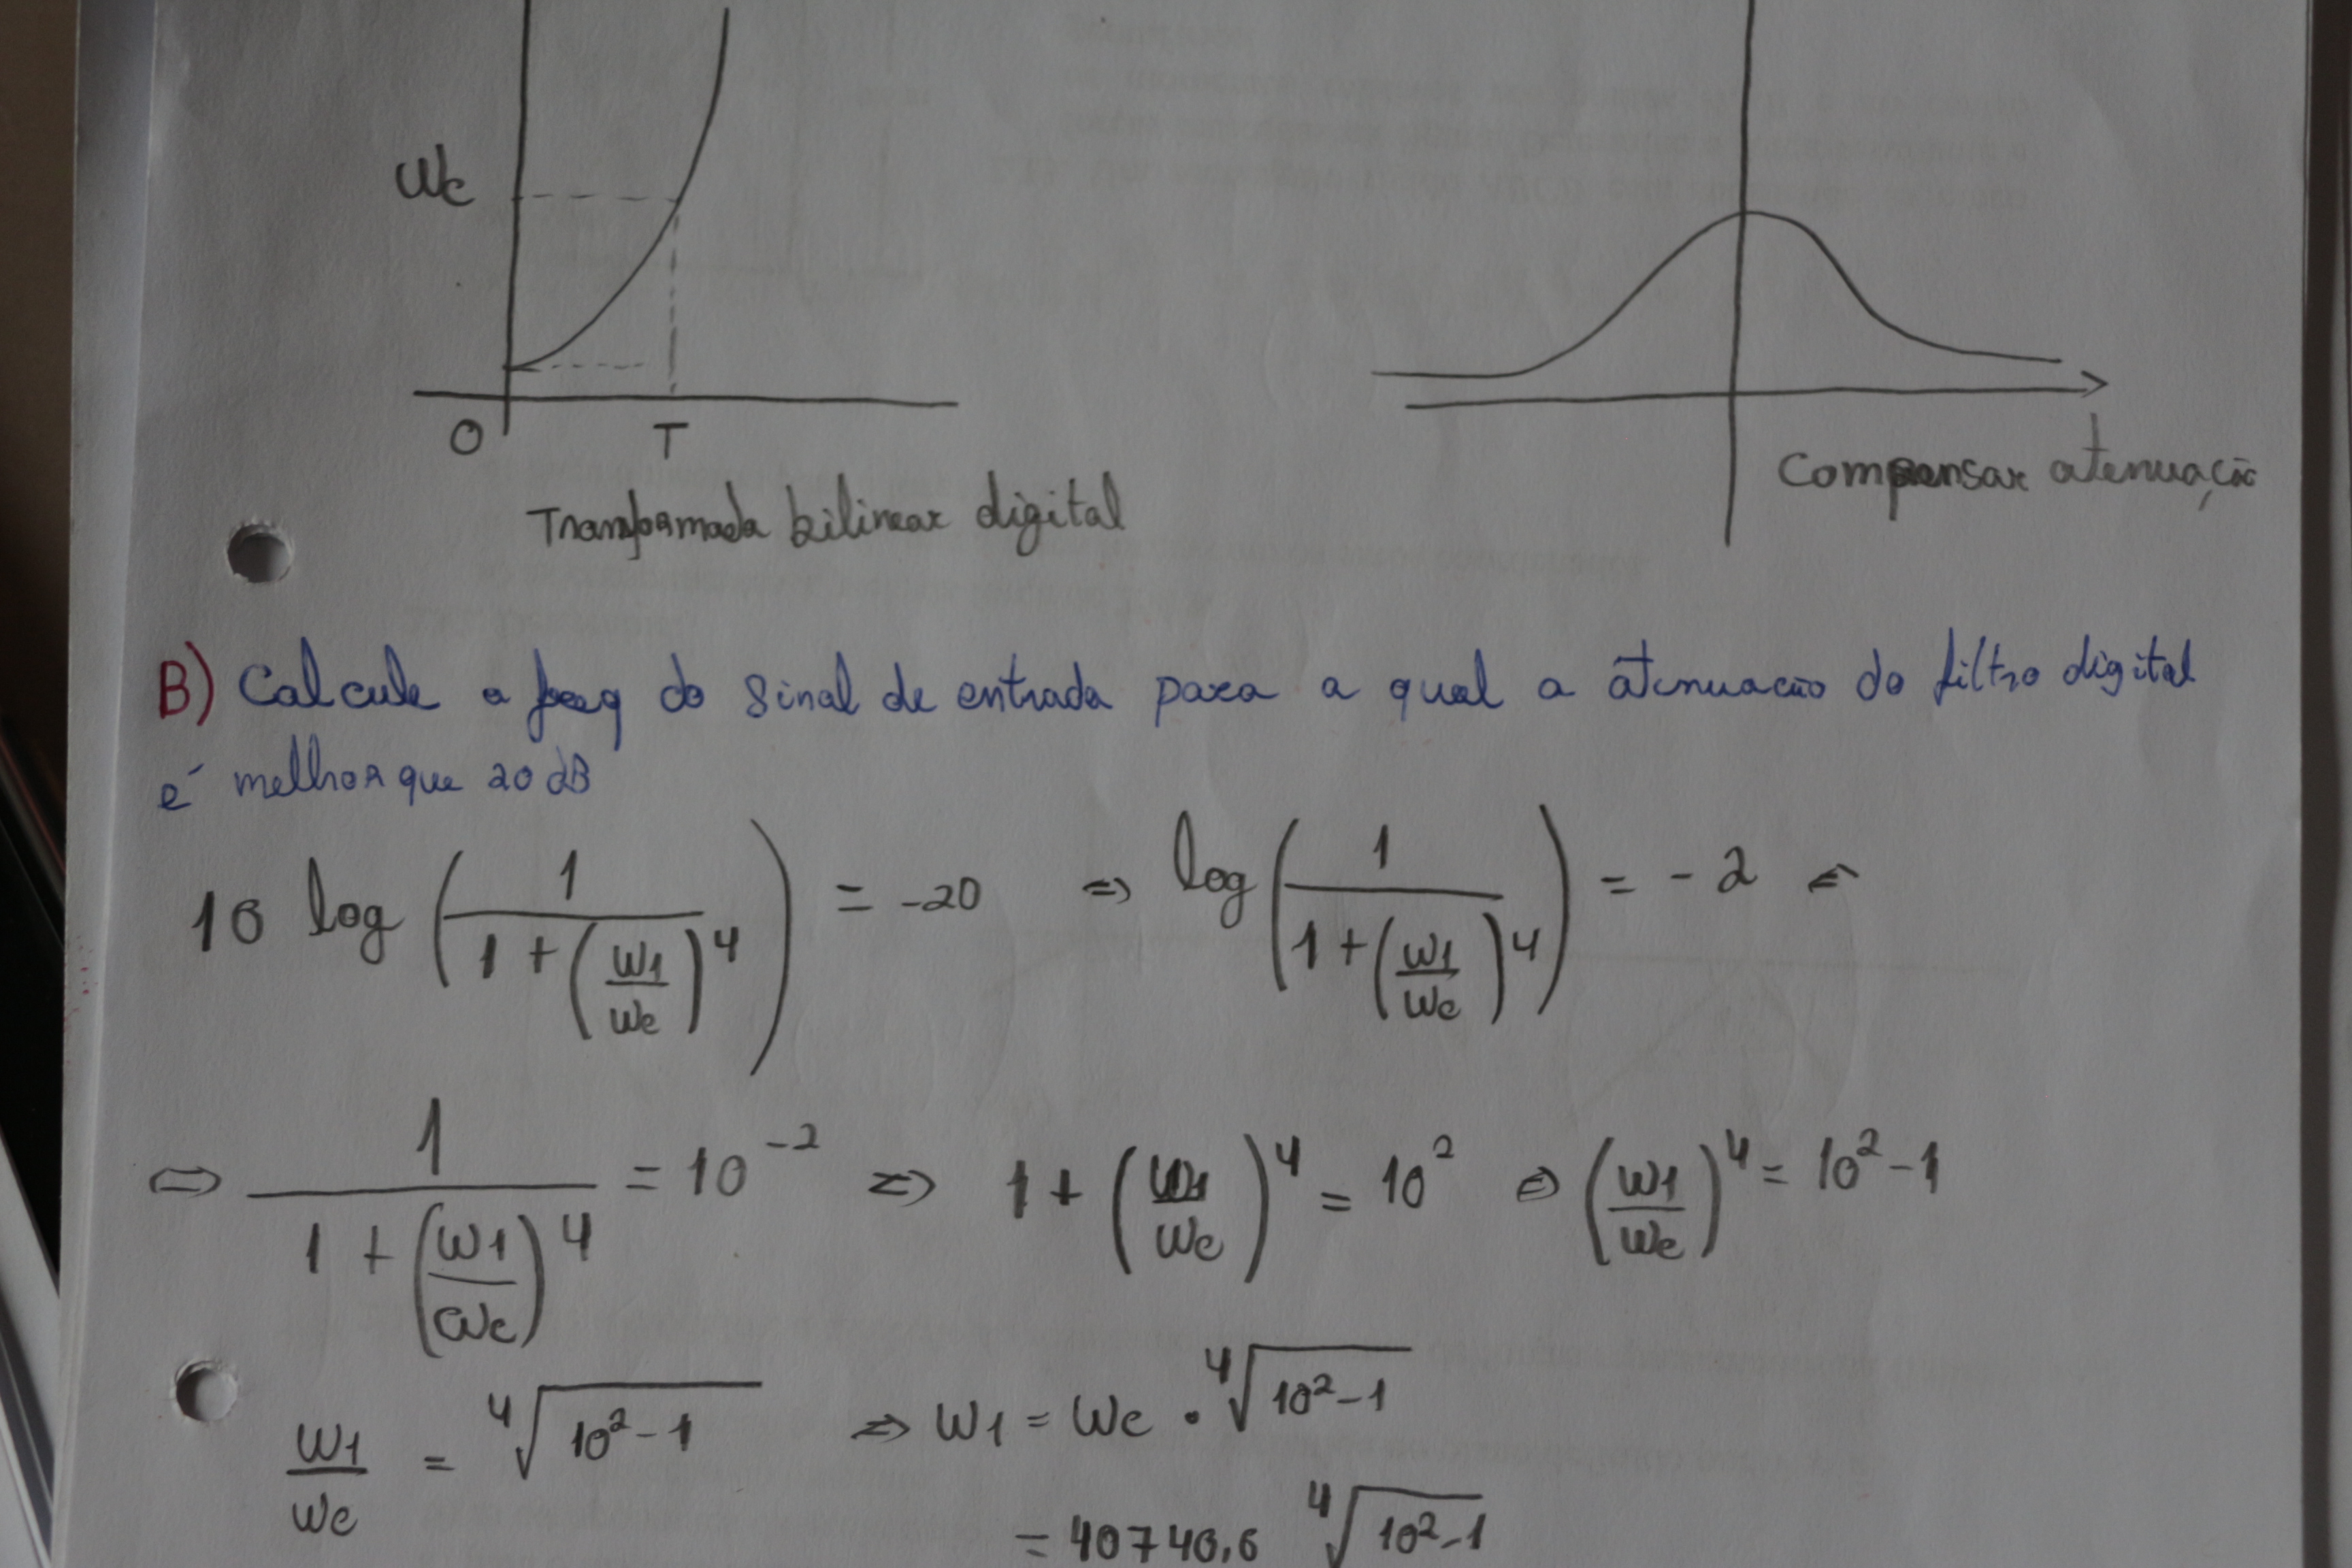 Wc
O T
Transformada bilinear digital
Compensar atenuação
B) Calcule a freq do sinal de entrada para a qual a atenuacão do filtro digital
é melhor que 20 dB
10 log (1 / (1 + (W1/Wc)^4)) = -20 => log (1 / (1 + (W1/Wc)^4)) = -2 <=
<=> 1 / (1 + (W1/Wc)^4) = 10^-2 <=> 1 + (W1/Wc)^4 = 10^2 <=> (W1/Wc)^4 = 10^2 - 1
W1/Wc = ⁴√(10^2 - 1) => W1 = Wc · ⁴√(10^2 - 1)
= 40740,6 ⁴√(10^2 - 1)